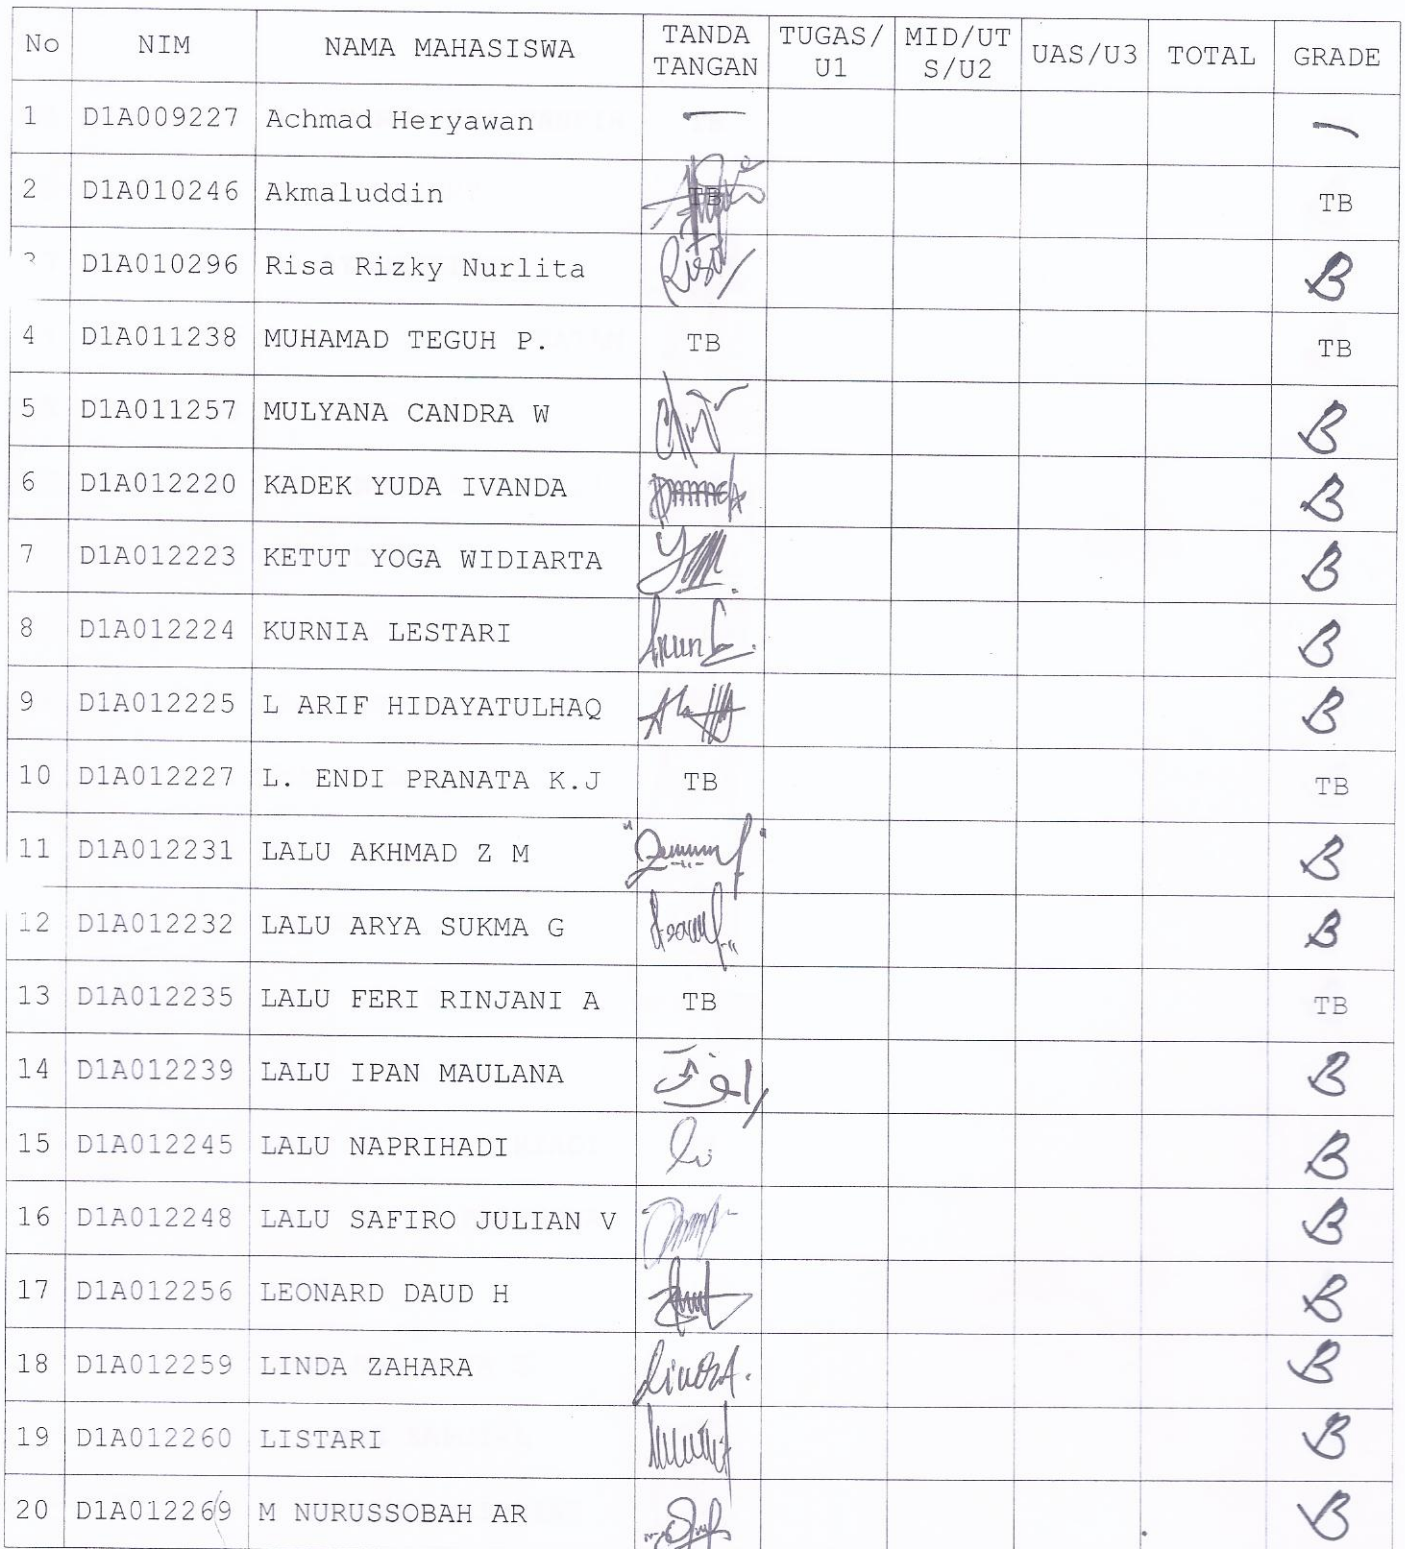 No NIM NAMA MAHASISWA TANDA TANGAN TUGAS/U1 MID/UTS/U2 UAS/U3 TOTAL GRADE
1 D1A009227 Achmad Heryawan — —
2 D1A010246 Akmaluddin TB TB
3 D1A010296 Risa Rizky Nurlita B
4 D1A011238 MUHAMAD TEGUH P. TB TB
5 D1A011257 MULYANA CANDRA W B
6 D1A012220 KADEK YUDA IVANDA B
7 D1A012223 KETUT YOGA WIDIARTA B
8 D1A012224 KURNIA LESTARI B
9 D1A012225 L ARIF HIDAYATULHAQ B
10 D1A012227 L. ENDI PRANATA K.J TB TB
11 D1A012231 LALU AKHMAD Z M B
12 D1A012232 LALU ARYA SUKMA G B
13 D1A012235 LALU FERI RINJANI A TB TB
14 D1A012239 LALU IPAN MAULANA B
15 D1A012245 LALU NAPRIHADI B
16 D1A012248 LALU SAFIRO JULIAN V B
17 D1A012256 LEONARD DAUD H B
18 D1A012259 LINDA ZAHARA B
19 D1A012260 LISTARI B
20 D1A012269 M NURUSSOBAH AR B